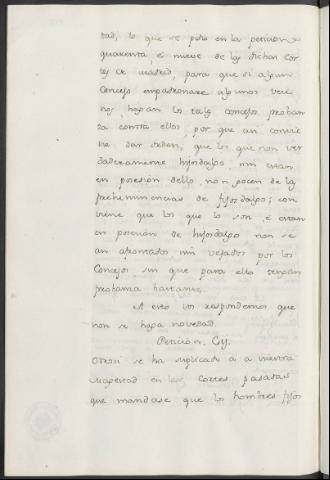 tad, lo que se pidio en la peticion
quarenta, e nueve de las dichas Cor
tes de Madrid, para que si algun
Concejo empadronare algunos veci
nos, hagan los tales concejos proban
za contra ellos, por que an convie
ne dar orden, que los que non ver
daderamente hijosdalgo, nin estan
en posesion dello, no gocen de las
prehemminencias de fijosdalgo; con
viene que los que lo son, e estan
en posesion de hijosdalgo non se
an afrontados nin vejados por los
Concejos sin que para ello tengan
probanza bastante.
A esto vos respondemos que
non se haga novedad.
Peticion. Cij.
Otrosi se ha suplicado a vuestra
Magestad en las Cortes pasadas
que mandase que los hombres fijos